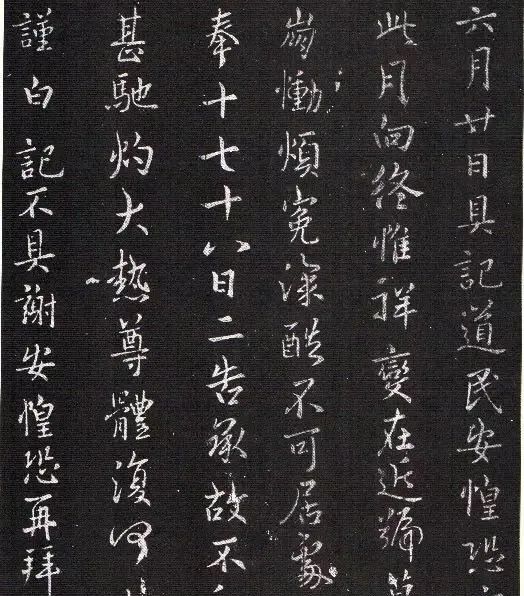 六月廿日具記道民安惶恐
此月向終惟祥變在近號
崩慟煩冤深酷不可居處
奉十七十八日二告承故不
甚馳灼大熱尊體復何
謹白記不具謝安惶恐再拜